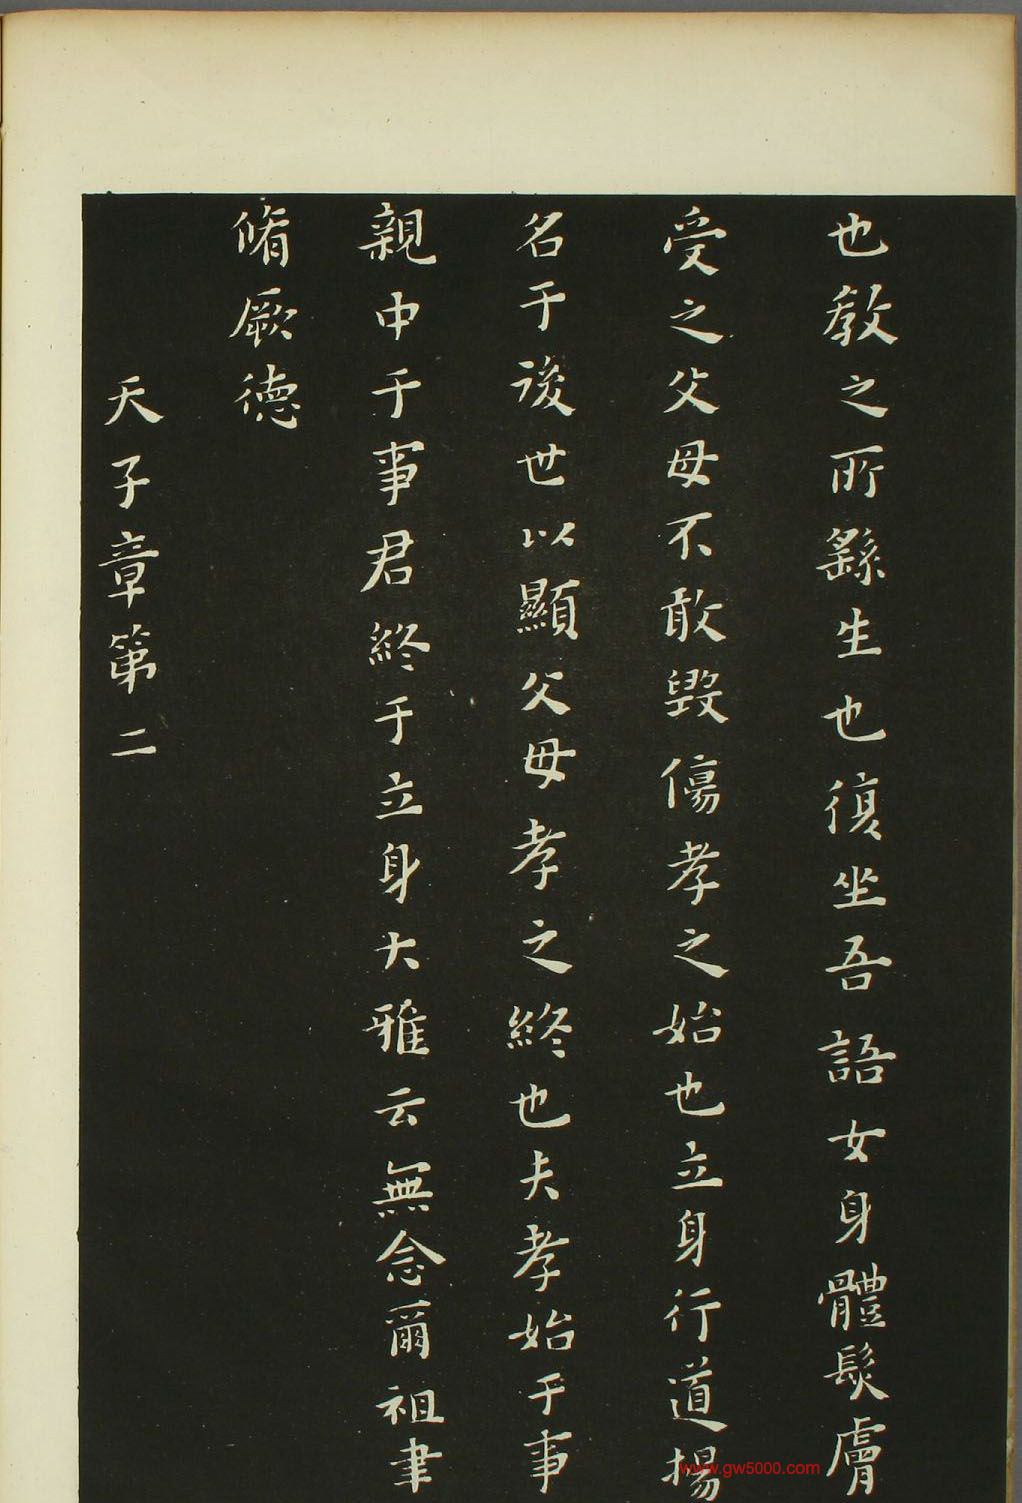 也教之所繇生也復坐吾語女身體髮膚
受之父母不敢毀傷孝之始也立身行道揚
名于後世以顯父母孝之終也夫孝始于事
親中于事君終于立身大雅云無念爾祖聿
脩厥德
天子章第二
www.gw5000.com